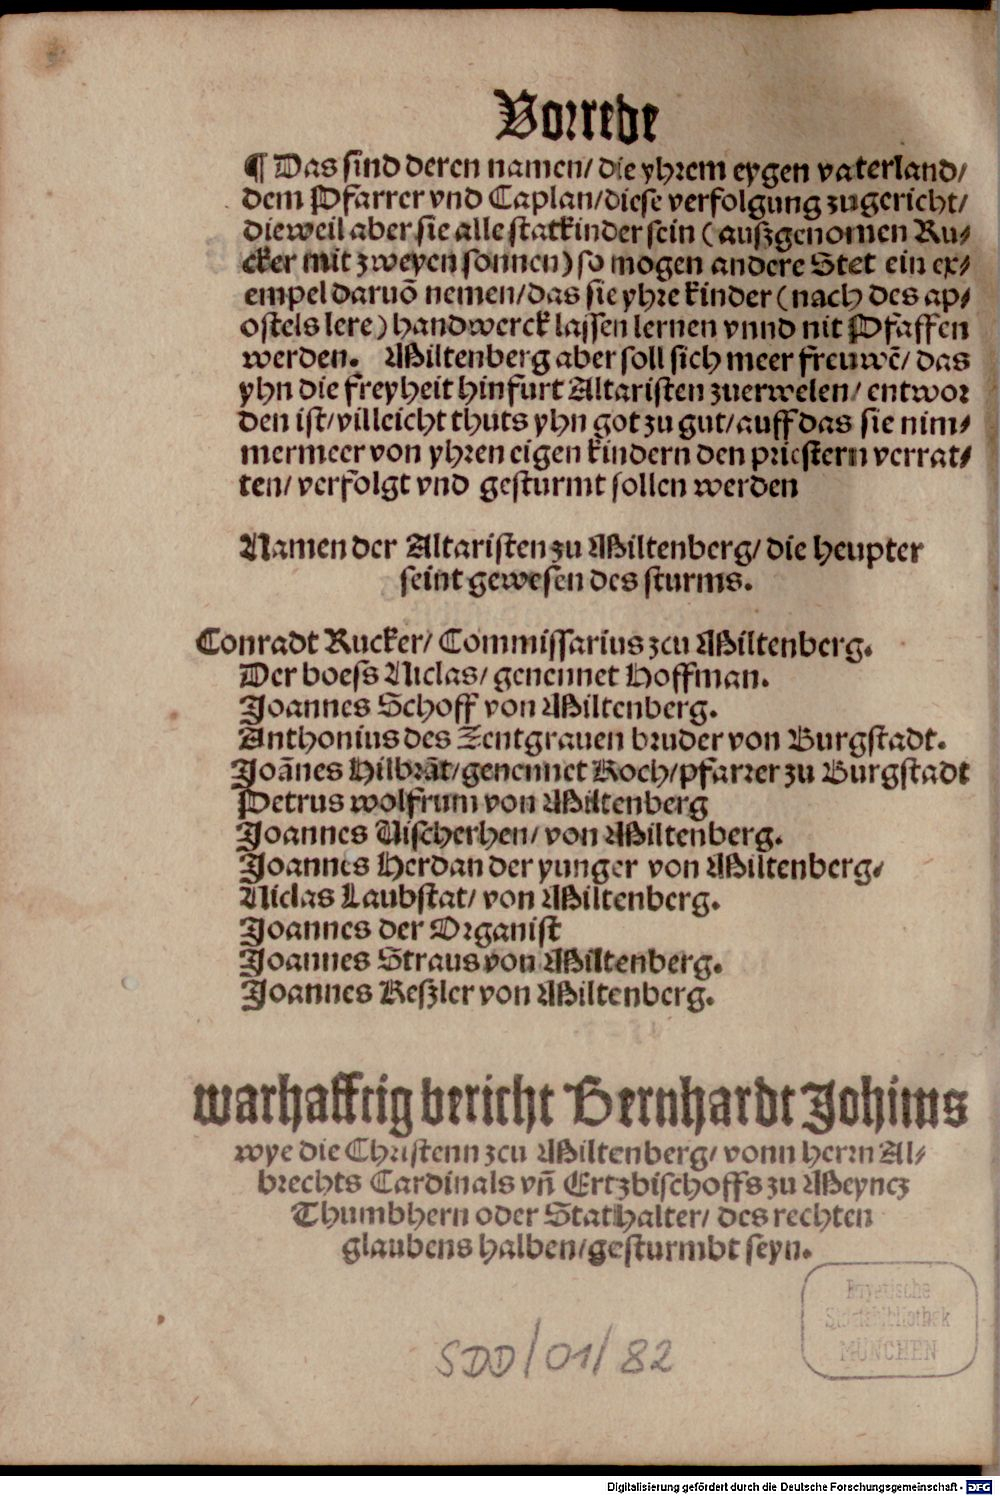 Vorrede
¶ Das sind deren namen/ die yhrem eygen vaterland/
dem Pfarrer vnd Caplan/diese verfolgung zugericht/
dieweil aber sie alle statkinder sein (außgenomen Ru-
cker mit zweyen sonnen) so mogen andere Stet ein ex-
empel daruõ nemen/das sie yhre kinder (nach des ap-
ostels lere) handwerck lassen lernen vnnd nit Pfaffen
werden. Miltenberg aber soll sich meer freuwẽ/ das
yhn die freyheit hinfurt Altaristen zuerwelen/ entwor
den ist/villeicht thuts yhn got zu gut/auff das sie nim-
mermeer von yhren eigen kindern den priestern verrat-
ten/ verfolgt vnd gesturmt sollen werden
Namen der Altaristen zu Miltenberg/ die heupter
seint gewesen des sturms.
Conradt Rucker/ Commissarius zcu Miltenberg.
Der boess Niclas/ genennet Hoffman.
Joannes Schoff von Miltenberg.
Anthonius des Zentgrauen bruder von Burgstadt.
Joãnes Hilbrãt/genennet Koch/pfarrer zu Burgstadt
Petrus wolfrum von Miltenberg
Joannes Vischerhen/ von Miltenberg.
Joannes Herdan der yunger von Miltenberg/
Niclas Laubstat/ von Miltenberg.
Joannes der Organist
Joannes Straus von Miltenberg.
Joannes Keßler von Miltenberg.
warhafftig bericht Bernhardt Johims
wye die Christenn zcu Miltenberg/ vonn herrn Al-
brechts Cardinals vñ Ertzbischoffs zu Meyncz
Thumbhern oder Stathalter/ des rechten
glaubens halben/gesturmbt seyn.
Bayerische
Staatsbibliothek
MÜNCHEN
SDD/01/82
Digitalisierung gefördert durch die Deutsche Forschungsgemeinschaft - DFG